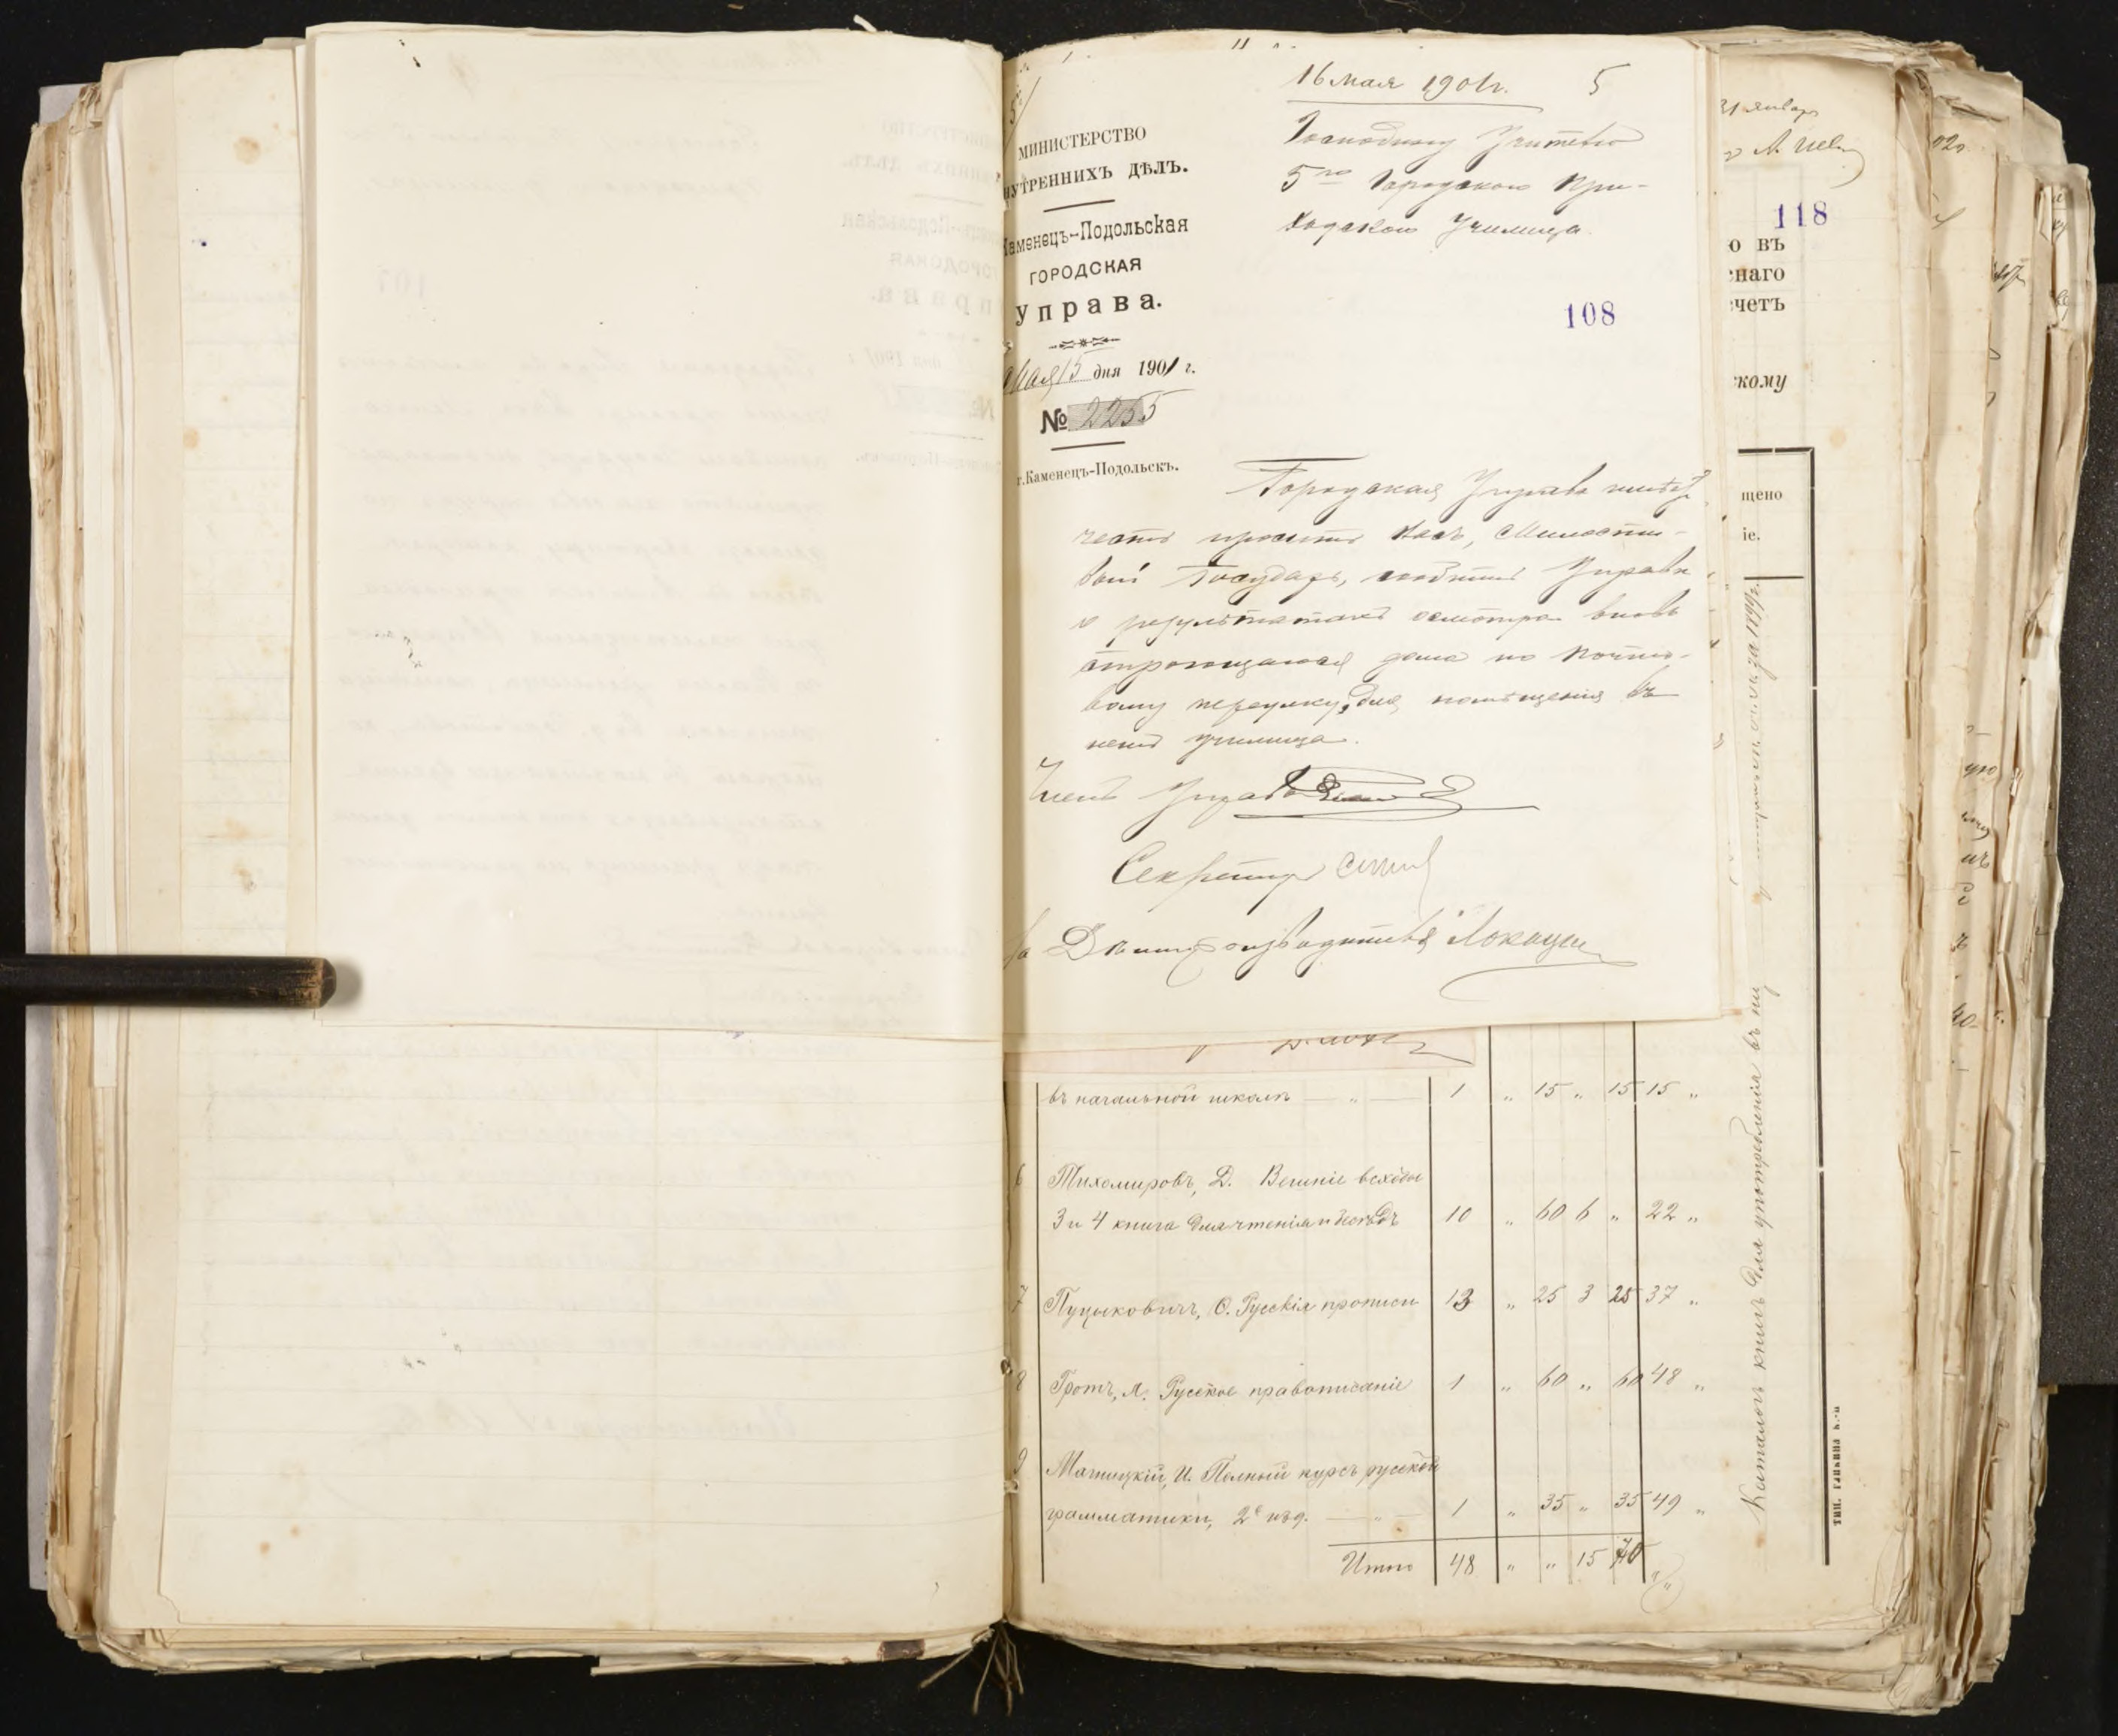 16 мая 1901 г. 5
МИНИСТЕРСТВО
НУТРЕННИХЪ ДѢЛЪ.
Каменецъ-Подольская
ГОРОДСКАЯ
Управа.
Мая 15 дня 1901 г.
№ 2255
г. Каменецъ-Подольскъ.
Господину Учителю
5го Городского При-
ходского Училища.
108
Городская Управа имѣетъ
честь просить Васъ, Милости-
вый Государь, сообщить Управѣ
о результатахъ осмотра вновь
строющагося дома по Почто-
вому переулку, для помѣщенія въ
немъ училища.
Членъ Управы
Секретарь
За Дѣлопроизводителя
въ начальной школѣ — „ — 1 „ 15 „ 15 15 „
6 Тихомировъ, Д. Вешніе всходы
3 и 4 книга для чтенія и бесѣдъ 10 „ 60 6 „ 22 „
7 Пуцыковичъ, Ѳ. Русскія прописи 13 „ 25 3 25 37 „
8 Гротъ, Я. Русское правописаніе 1 „ 60 „ 60 48 „
9 Магницкій, И. Полный курсъ русской
грамматики, 2е изд. — „ — 1 „ 35 „ 35 49 „
Итого 48 „ „ 15 70 „
31 январ
118
о въ
наго
четъ
кому
щено
іе.
Каталогъ книгъ для употребленія въ
за 1899 г.